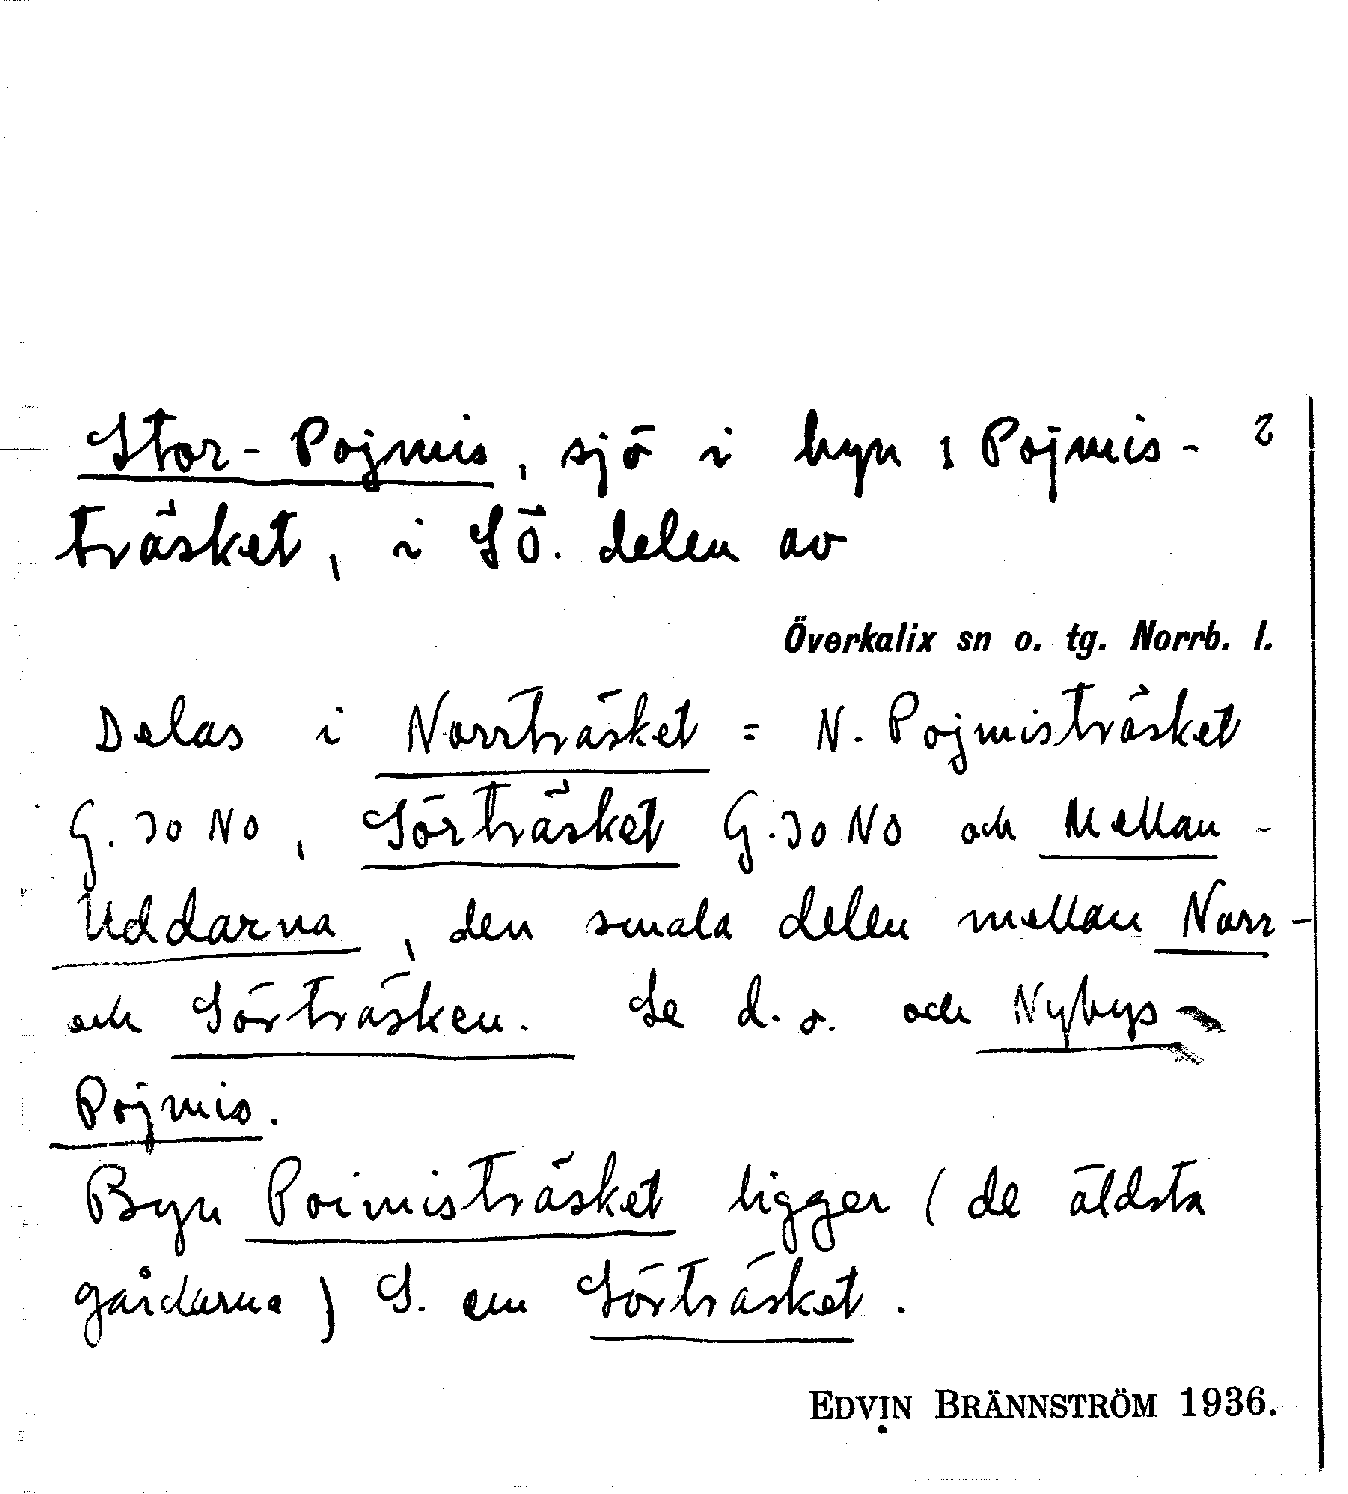 Stor-Pojmis, sjö i byn 1 Pojmis- 2
träsket, i SÖ. delen av
Överkalix sn o. tg. Norrb. l.
Delas i Norrträsket = N. Pojmisträsket
G. 30 NO, Sörträsket G. 30 NO och Mellan-
Uddarna, den smala delen mellan Norr-
och Sörträsken. Se d. o. och Nybys-
Pojmis.
Byn Poimisträsket ligger (de äldsta
gårdarna) S. om Sörträsket.
EDVIN BRÄNNSTRÖM 1936.